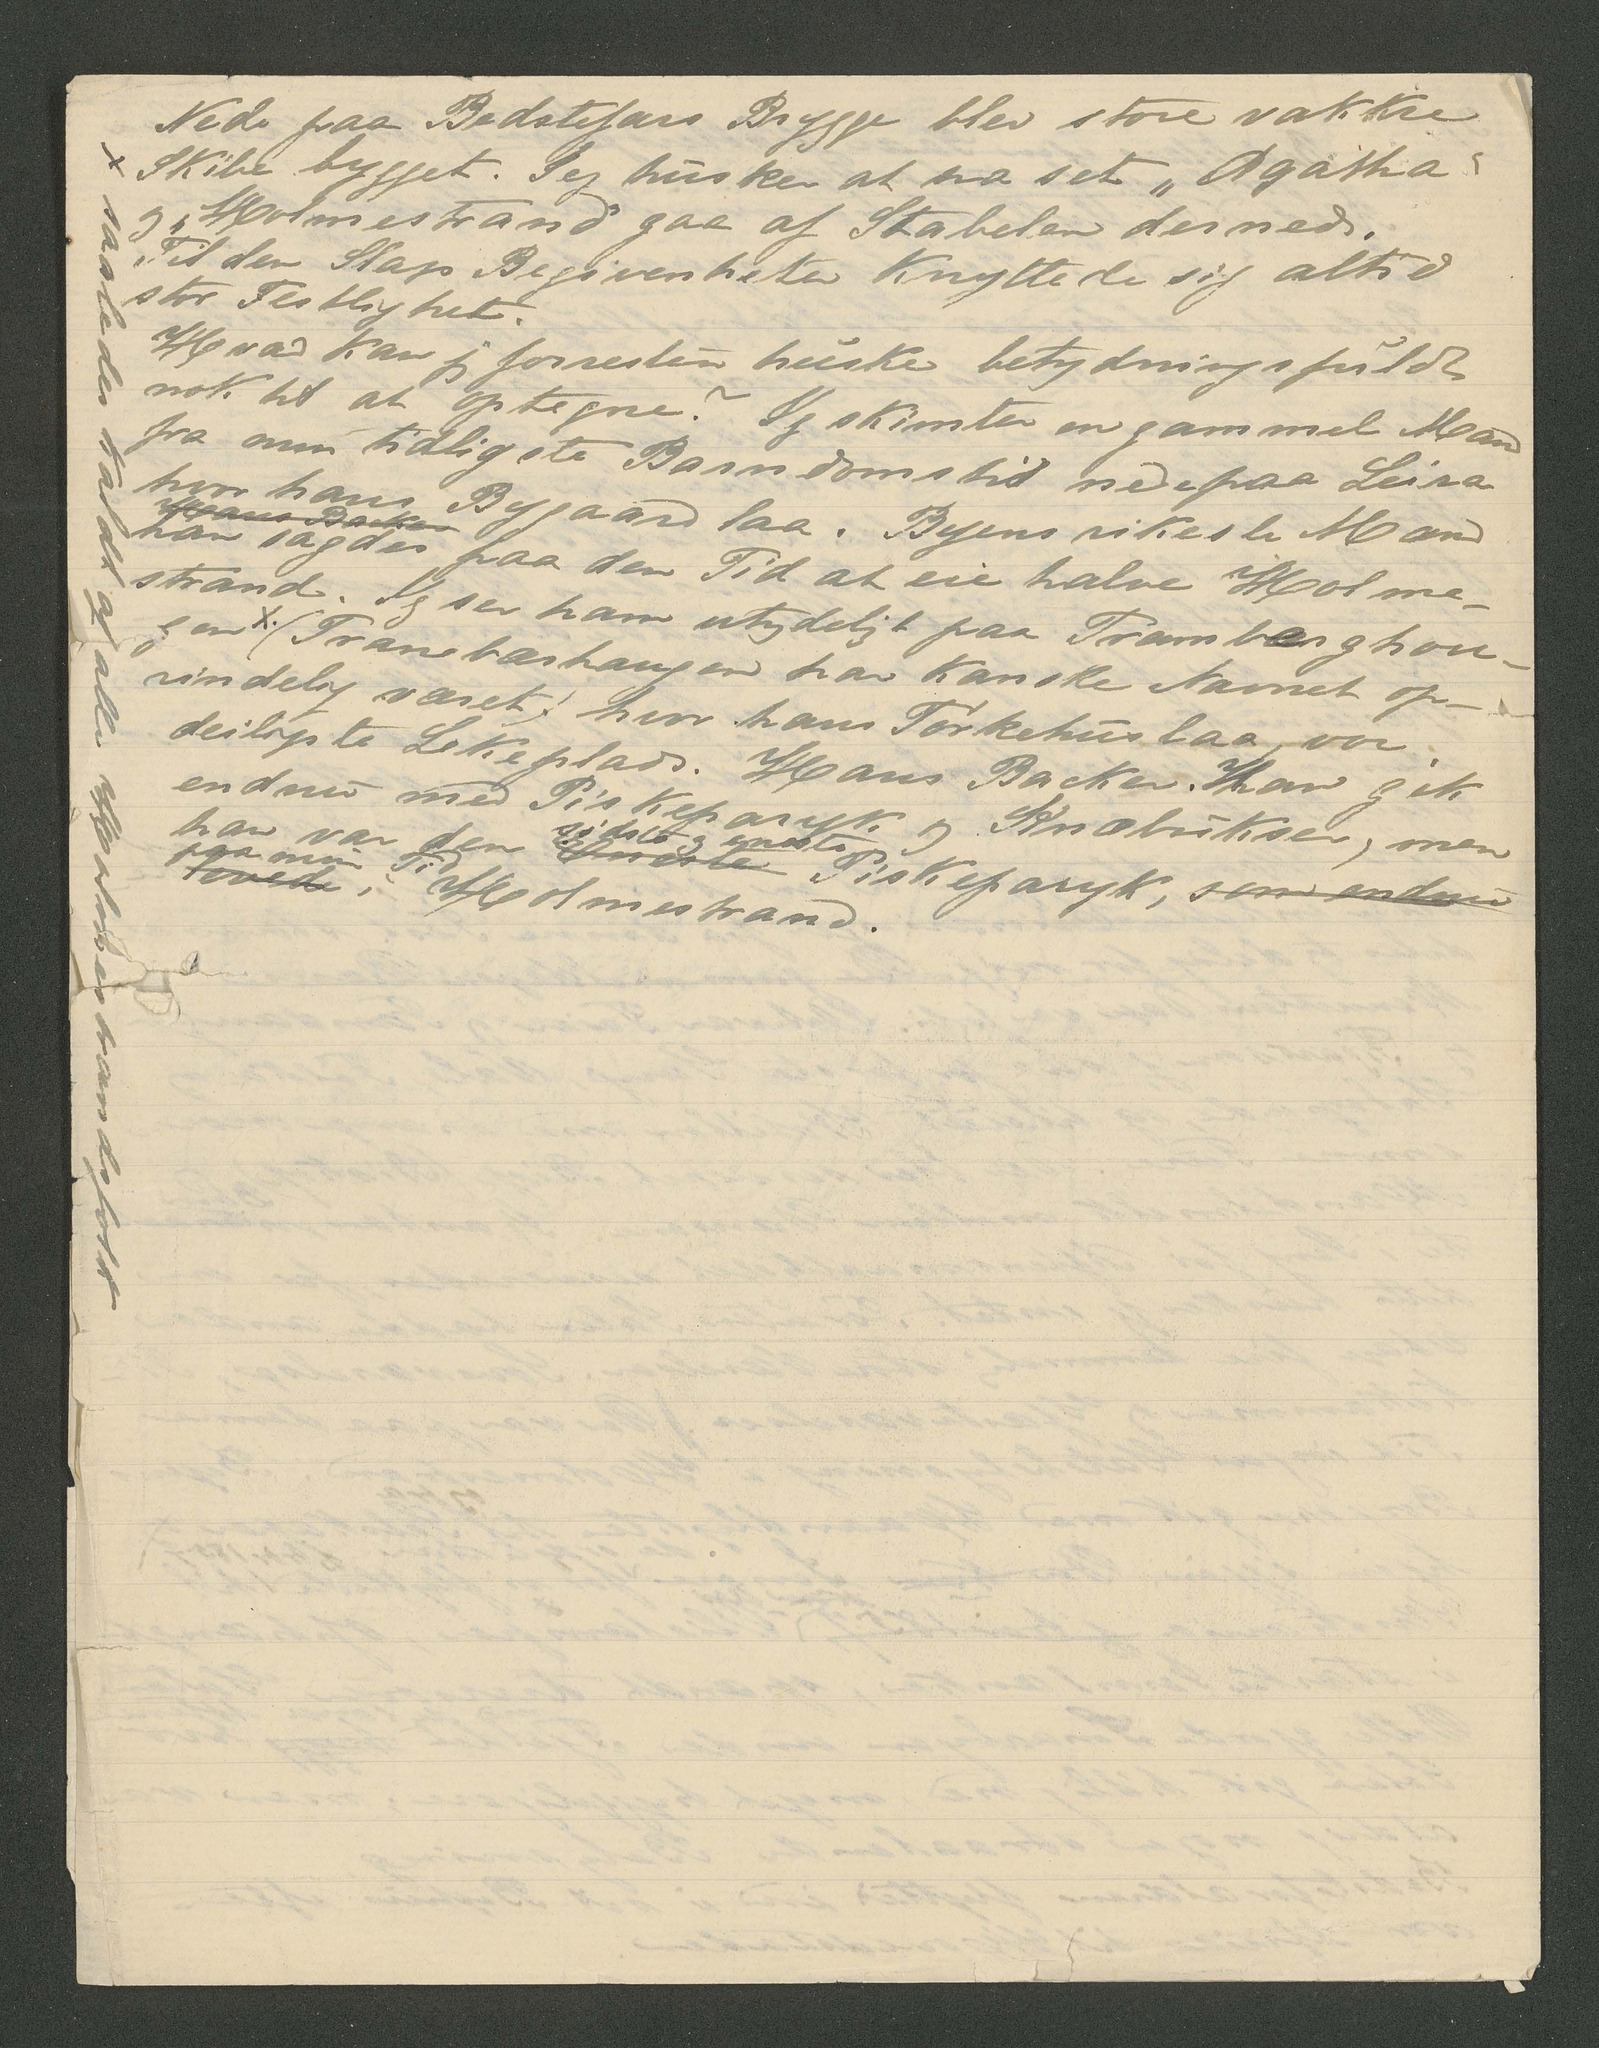 Nede paa Bedstefars Brygge blev store vakkre
Skibe bygget. Jeg husker at ha set „Agatha"
og „Holmestrand" gaa af Stabelen dernede.
Til den Slags Begivenheter knyttede sig altid
stor Festlighet.
Hvad kan jeg forresten huske betydningsfuldt
nok til at optegne? Jeg skimter en gammel Mand
fra min tidligste Barndomstid nede paa Leira
hvor hans Bygaard laa. Byens rikeste Mand
Hans Backer
han sagdes paa den Tid at eie halve Holme-
strand. Jeg ser ham utydeligt paa Tramberghou-
gen x. (Tranebærhaugen har kanske Navnet op-
rindelig været) hvor hans Tørkehus laa, vor
deiligste Lekeplads. Hans Backer. Han gik
endnu med Piskeparyk og Knæbukser, men
sidste og eneste
han var den eneste Piskeparyk, som endnu
paa min Tid
levede i Holmestrand.
x saaledes kaldt af alle Holmestrandsfolk